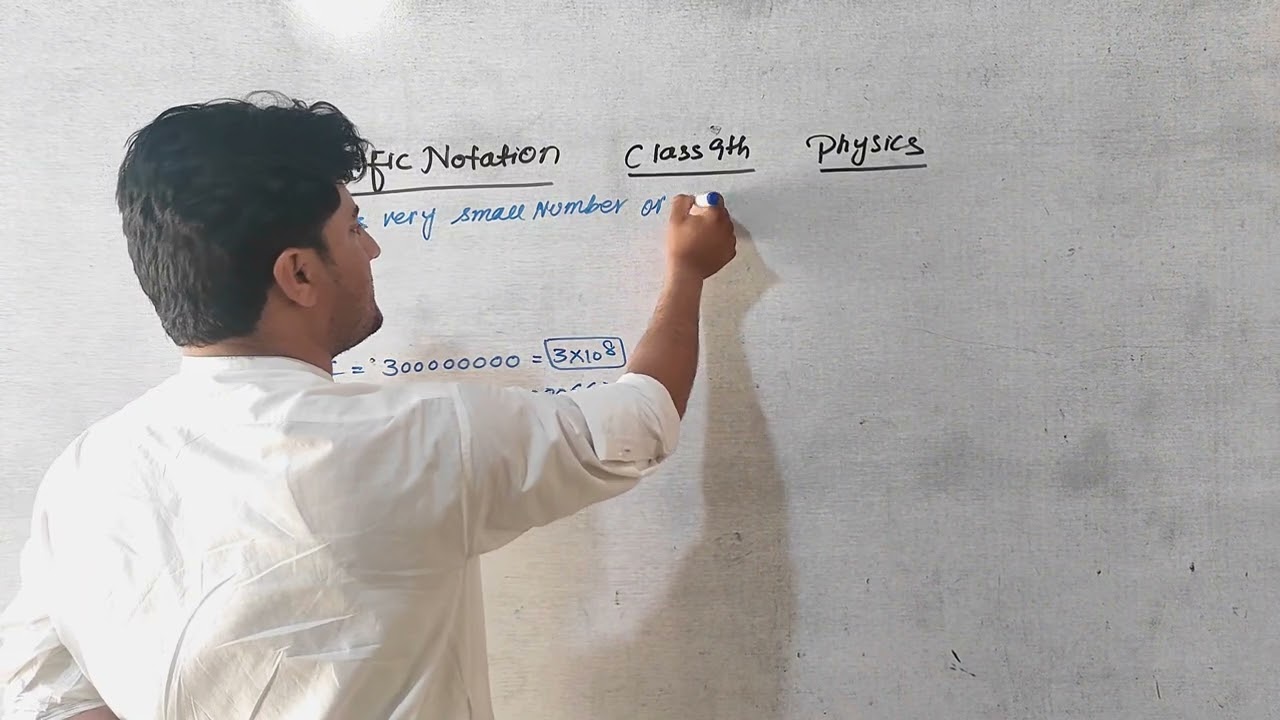 ific Notation Class 9th Physics
very small Number or
= 300000000 = 3X10⁸